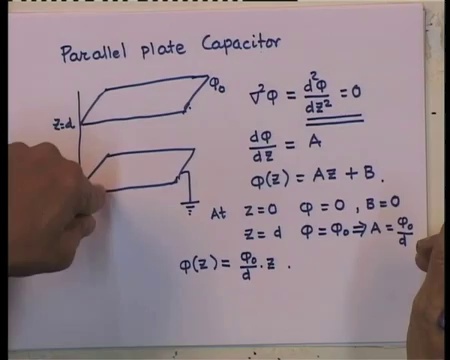 Parallel plate Capacitor
φ₀
∇²φ = d²φ/dz² = 0
z=d
dφ/dz = A
φ(z) = Az + B.
At z=0 φ=0, B=0
z=d φ=φ₀ ⇒ A = φ₀/d
φ(z) = φ₀/d . z .